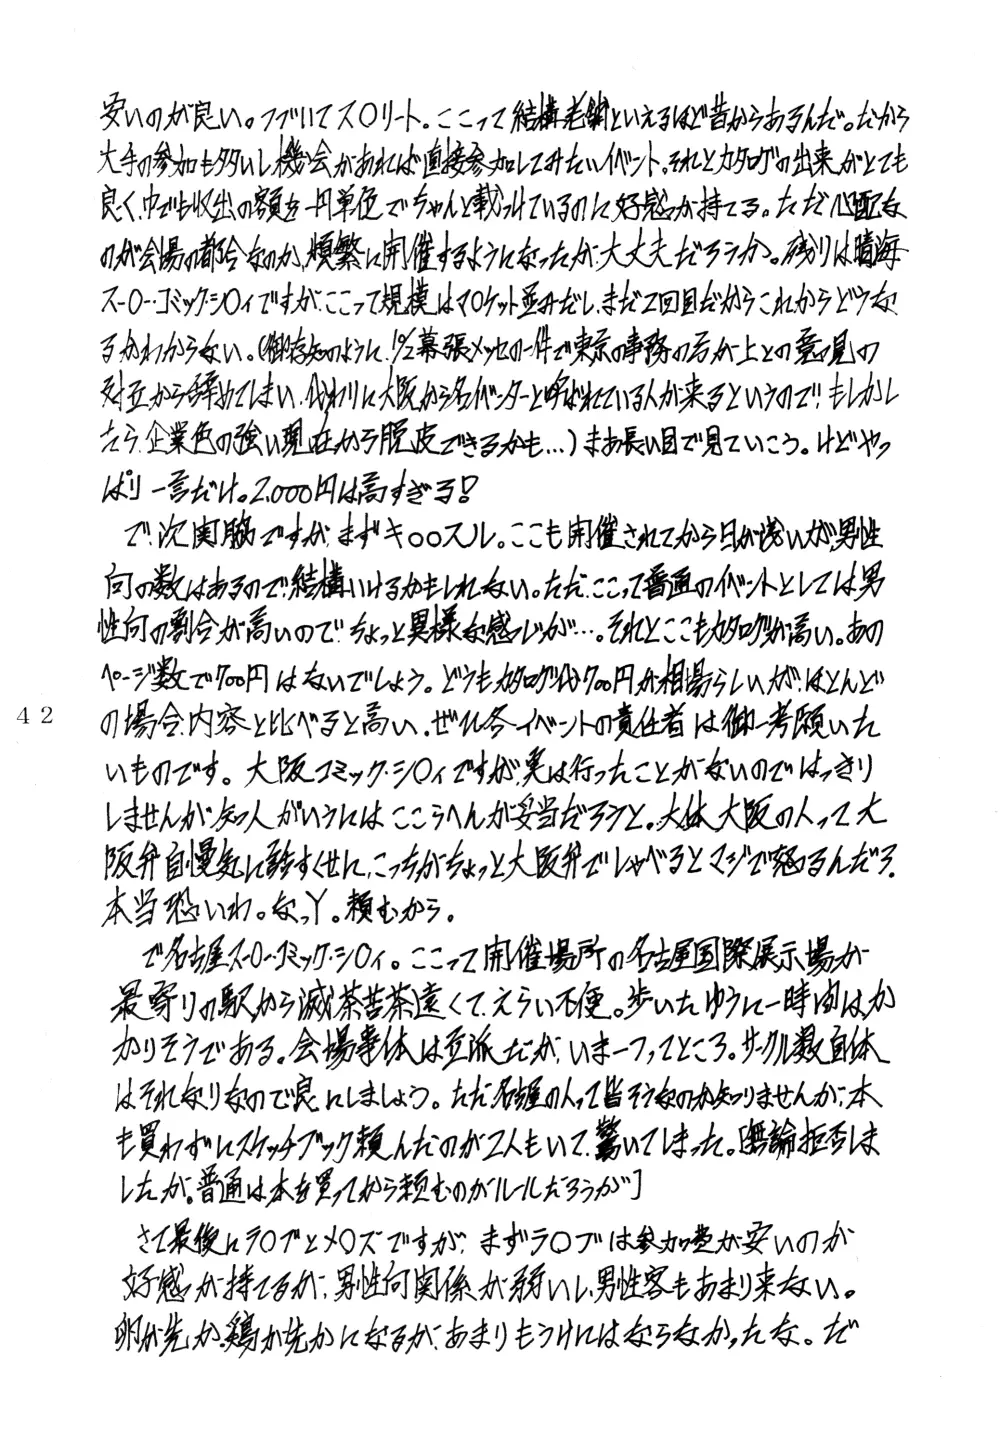 安いのが良い。つづいてス〇リート。ここって結構老舗といえるほど昔からあるんだ。だから
大手の参加も多いし機会があれば直接参加してみたいイベント。それとカタログの出来がとても
良く、中でも収出の額を一円単色でちゃんと載っけているのに好感が持てる。ただ心配な
のが会場の都合なのか、頻繁に開催するようになったが、大丈夫だろうか。残りは晴海
スー〇ーコミック・シ〇ィですが、ここって規模はマ〇ケット並みだし、まだ2回目だからこれからどうな
るかわからない。(御存知のように、幕張メッセの一件で東京の事務の方が上との意見の
対立から辞めてしまい、代わりに大阪から名イベンターと呼ばれている人が来るというので!もしかし
たら、企業色の強い現在から脱皮できるかも…)まあ長い目で見ていこう。けどやっ
ぱり一言だけ。2,000円は高すぎる!
で、次関脇ですが、まずキ〇〇スル。ここも開催されてから日が浅いが、男性
向の数はあるので、結構いけるかもしれない。ただ、ここって普通のイベントとしては男
性向の割合が高いので、ちょっと異様な感じが…。それとここもカタログが高い。あの
ページ数で700円はないでしょう。どうもカタログ代700円が相場らしいが、ほとんど
の場合、内容と比べると高い。ぜひ各イベントの責任者は御一考願いた
いものです。大阪コミック・シ〇ィですが、実は行ったことがないのではっきり
しませんが、知人がいうにはここらへんが妥当だろうと。大体大阪の人って大
阪弁自慢気に話すくせに、こっちがちょっと大阪弁でしゃべるとマジで怒るんだろ。
本当恐いわ。なっY。頼むから。
で名古屋スー〇ーコミック・シ〇ィ。ここって開催場所の名古屋国際展示場が
最寄りの駅から滅茶苦茶遠くて、えらい不便。歩いたゆうに一時間はか
かりそうである。会場事体は立派だが、いま一つってところ。サークル数自体
はそれなりなので良しにしましょう。ただ名古屋の人って皆そうなのか知りませんが、本
も買わずにスケッチブック頼んだのが2人もいて、驚いてしまった。[無論拒否しま
したが。普通は本を買ってから頼むのがルールだろうが]
さて最後にラ〇ブとメ〇ズですが、まずラ〇ブは参加費が安いのが
好感が持てるが、男性向関係が弱いし、男性客もあまり来ない。
卵が先か、鶏が先かになるが、あまりもうけにはならなかったな。だ
42